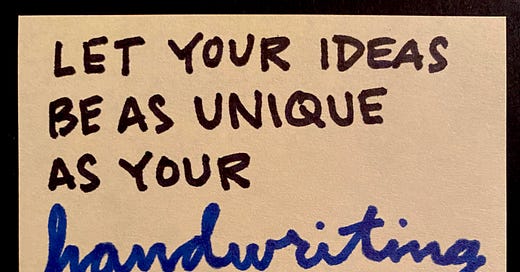 LET YOUR IDEAS
BE AS UNIQUE
AS YOUR
handwriting